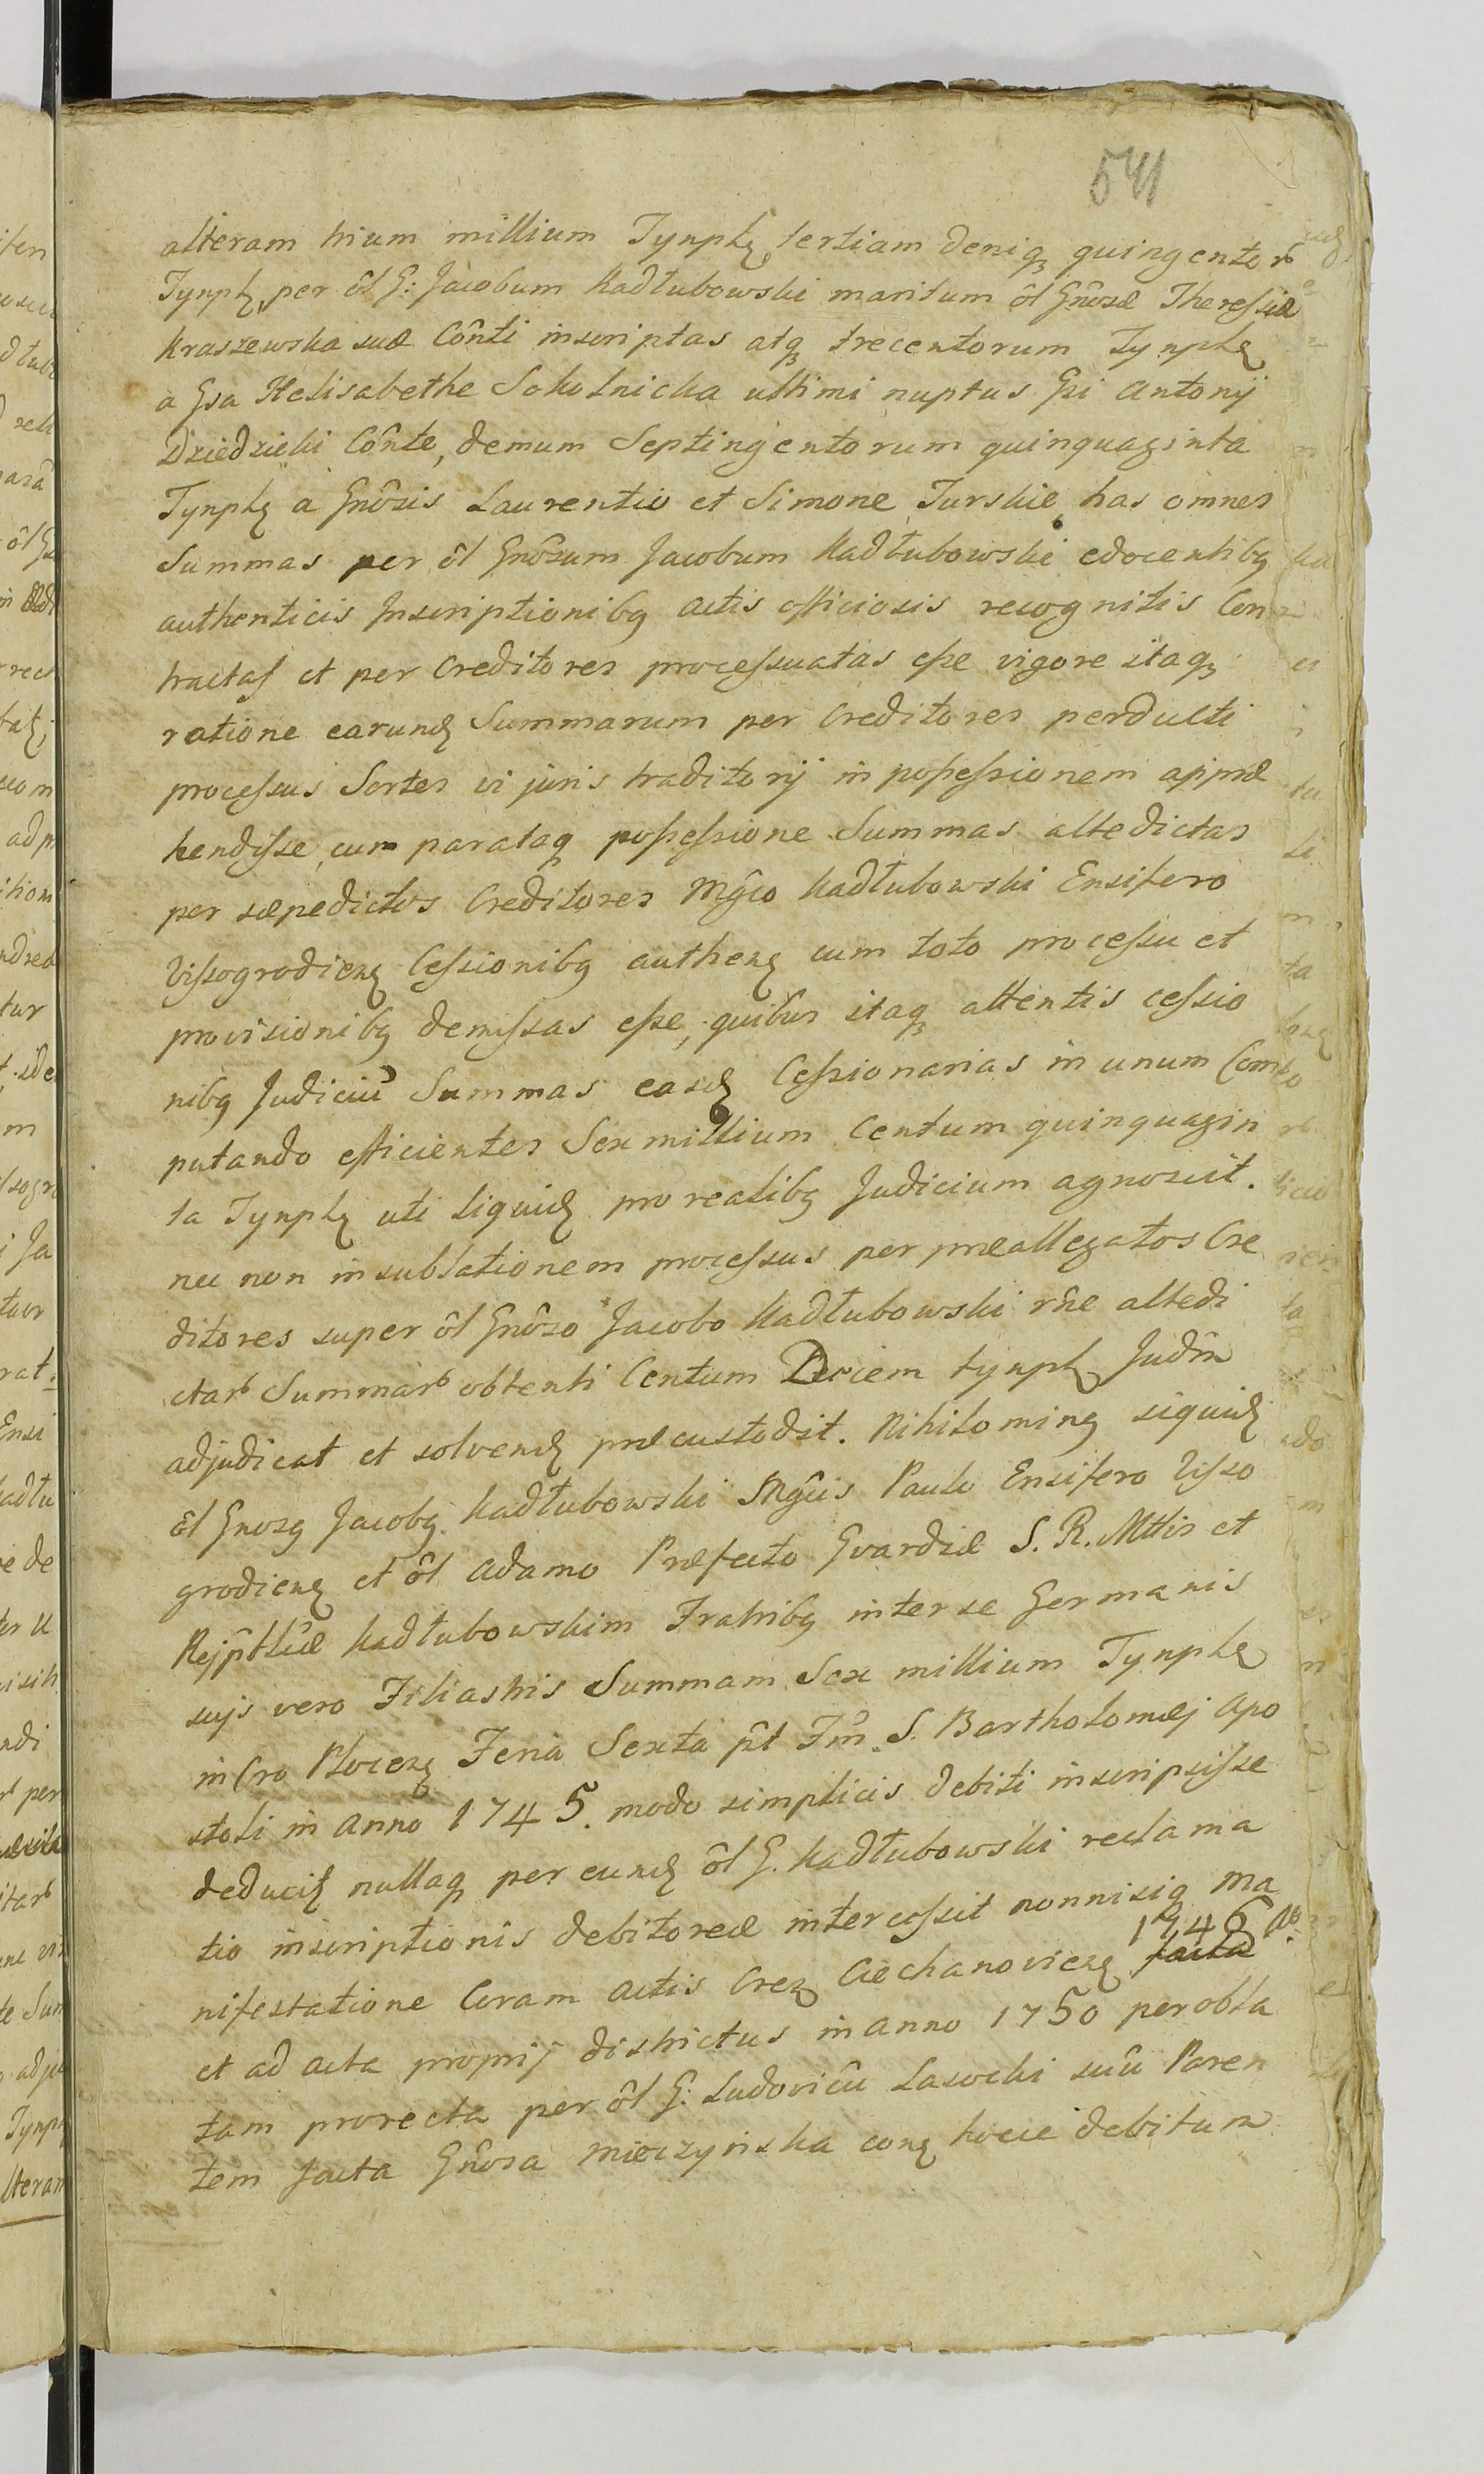 541
alteram trium millium Tynph, tertiam deniq, quingentor
Tynph, per ol G: Jacobum Kadłubowski maritum ôl Gnôsæ Theressiæ
Kraszewska suæ Cônti inscriptas atq, trecentorum Tynph
a Gsa Helisabethe Sokolnicka ultimi nuptus Gsi Antonij
Dziedzicki Cônte, demum Septingentorum quinquaginta
Tynph a Gnôsis Laurentio et Simone Turskie, has omnes
Summas per ôl Gnôsum Jacobum Kadłubowski edocentibq
authenticis Inscriptionibq actis officiosis recognitis Con
tractas et per Creditores processuatas esse vigore itaq
ratione earund Summarum per Creditores perducti
processus Sortes vi juris traditorij in possessionem appræ
hendisse, cum parataq possessione Summas altedictas
per sæpedictos Creditores Mgco Kadłubowski Ensifero
Vissogrodien Cessionibq authen cum toto processu et
provisionibq demissas esse, quibus itaq attentis cessio
nibq Judiciu Summas easd Cessionarias in unum Com
putando efficientes Sex millium Centum quinquagin
ta Tynph uti liquid pro realibq Judicium agnoscit.
nec non in sublationem processus per præallegatos Cre
ditores super ôl Gnôso Jacobo Kadłubowski rñe altedi
ctar Summar obtenti Centum Deciem tynph Judm
adjudicat et solvend præcustodit. Nihilominq siquid
ôl Gnosq Jacobq Kadłubowski Mgcis Paulo Ensifero Visso
grodien et ôl Adamo Præfecto Gvardiæ S. R. Mttis et
Rejptlicæ Kadłubowskim Fratribq inter se Germanis
sujs vero Filiastris Summam Sex millium Tynph
in Cro Plocen Feria Sexta pt Fm S. Bartholomæj Apo
stoli in Anno 1745. modo simplicis debiti inscripsisse
deducit nullaq per eund ôl G. Kadłubowski reclama
tio inscriptionis debitoreæ intercessit nonnisiq Ma
nifestatione Coram Actis Cren Ciechanovien facta 1746 Ao
et ad acta proprij districtus in Anno 1750 per obla
tam prorecta per ôl G: Ludovicu Lasocki suu Paren
tem facta Gnosa Mierzynska con hocce debitum